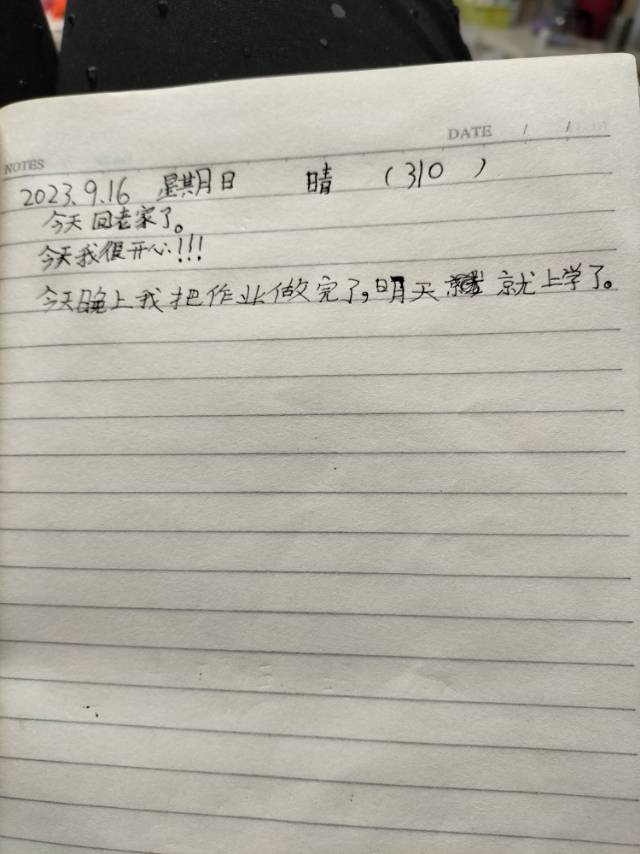 NOTES
DATE / /
2023.9.16 星期日 晴 (310)
今天回老家了。
今天我很开心!!!
今天晚上我把作业做完了,明天就上学了。